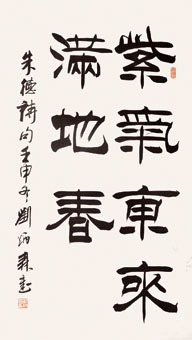 紫氣東來
滿地春
朱德詩句壬申冬劉炳森書